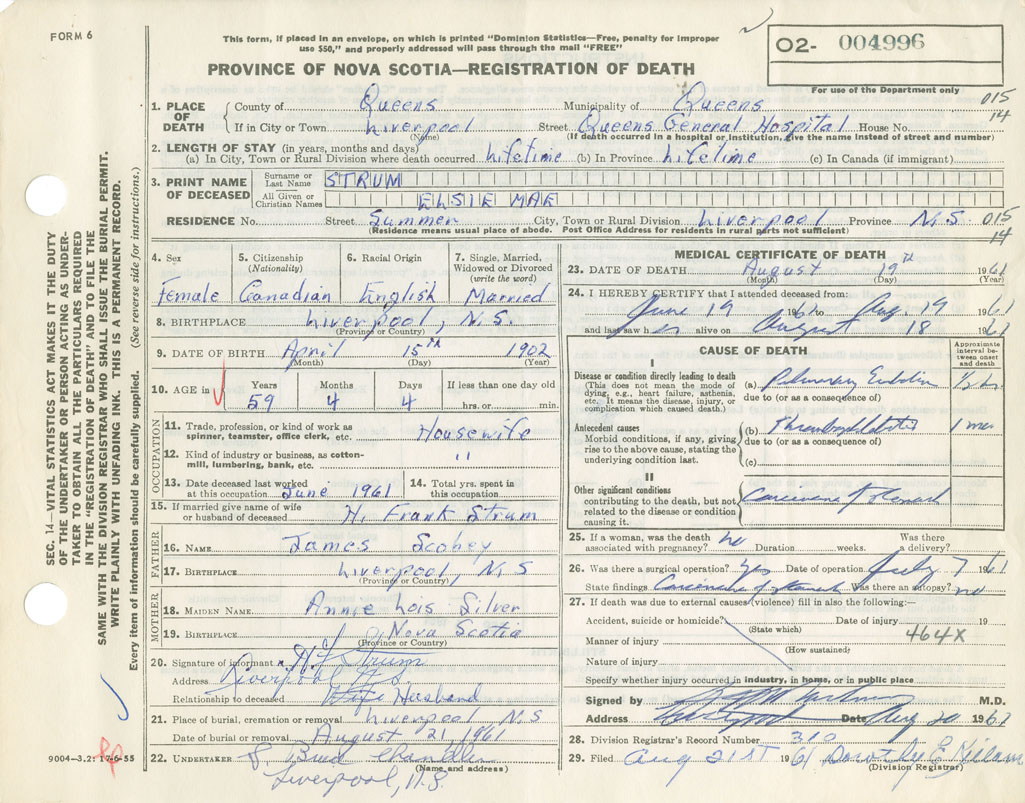 FORM 6
This form, if placed in an envelope, on which is printed "Dominion Statistics—Free, penalty for improper
use $50," and properly addressed will pass through the mail "FREE"
O2- 004996
PROVINCE OF NOVA SCOTIA—REGISTRATION OF DEATH
For use of the Department only
015
14
1. PLACE OF DEATH
County of Queens Municipality of Queens
If in City or Town Liverpool Street Queens General Hospital House No.
(Name) (If death occurred in a hospital or institution, give the name instead of street and number)
2. LENGTH OF STAY (in years, months and days)
(a) In City, Town or Rural Division where death occurred Lifetime (b) In Province Lifetime (c) In Canada (if immigrant)
3. PRINT NAME OF DECEASED
Surname or Last Name STRUM
All Given or Christian Names ELSIE MAE
RESIDENCE No. Street Summer City, Town or Rural Division Liverpool Province N.S. 015
14
(Residence means usual place of abode. Post Office Address for residents in rural parts not sufficient)
4. Sex 5. Citizenship (Nationality) 6. Racial Origin 7. Single, Married, Widowed or Divorced (write the word)
Female Canadian English Married
8. BIRTHPLACE Liverpool, N.S.
(Province or Country)
9. DATE OF BIRTH April 15th 1902
(Month) (Day) (Year)
10. AGE in Years Months Days If less than one day old
59 4 4 hrs. or min.
OCCUPATION
11. Trade, profession, or kind of work as
spinner, teamster, office clerk, etc. Housewife
12. Kind of industry or business, as cotton-
mill, lumbering, bank, etc. "
13. Date deceased last worked
at this occupation June 1961
14. Total yrs. spent in
this occupation
15. If married give name of wife
or husband of deceased H. Frank Strum
FATHER
16. NAME James Scobey
17. BIRTHPLACE Liverpool, N.S
(Province or Country)
MOTHER
18. MAIDEN NAME Annie Lois Silver
19. BIRTHPLACE Nova Scotia
(Province or Country)
20. Signature of informant H F Strum
Address Liverpool N.S.
Relationship to deceased Wife Husband
21. Place of burial, cremation or removal Liverpool N.S
Date of burial or removal August 21, 1961
22. UNDERTAKER Chandler
Liverpool, N.S.
(Name and address)
MEDICAL CERTIFICATE OF DEATH
23. DATE OF DEATH August 19th 1961
(Month) (Day) (Year)
24. I HEREBY CERTIFY that I attended deceased from:
June 19 1961 to Aug. 19 1961
and last saw her alive on August 18 1961
CAUSE OF DEATH
Approximate interval between onset and death
I
Disease or condition directly leading to death
(This does not mean the mode of
dying, e.g., heart failure, asthenia,
etc. It means the disease, injury, or
complication which caused death.)
(a) Pulmonary Embolism
due to (or as a consequence of)
Antecedent causes
Morbid conditions, if any, giving
rise to the above cause, stating the
underlying condition last.
(b) Thrombophlebitis
due to (or as a consequence of)
(c)
II
Other significant conditions
contributing to the death, but not
related to the disease or condition
causing it.
Carcinoma of stomach
25. If a woman, was the death no Was there
associated with pregnancy? Duration weeks. a delivery?
26. Was there a surgical operation? yes Date of operation July 7 1961
State findings Carcinoma of stomach Was there an autopsy? no
27. If death was due to external causes (violence) fill in also the following:—
Accident, suicide or homicide? Date of injury 19
(State which) 464X
Manner of injury
(How sustained)
Nature of injury
Specify whether injury occurred in industry, in home, or in public place
Signed by M.D.
Address Date Aug 20 1961
28. Division Registrar's Record Number 310
29. Filed Aug 21ST 1961 Dorothy E
(Division Registrar)
SEC. 14—VITAL STATISTICS ACT MAKES IT THE DUTY
OF THE UNDERTAKER OR PERSON ACTING AS UNDER-
TAKER TO OBTAIN ALL THE PARTICULARS REQUIRED
IN THE "REGISTRATION OF DEATH" AND TO FILE THE
SAME WITH THE DIVISION REGISTRAR WHO SHALL ISSUE THE BURIAL PERMIT.
WRITE PLAINLY WITH UNFADING INK. THIS IS A PERMANENT RECORD.
Every item of information should be carefully supplied. (See reverse side for instructions.)
9004—3.2: 17-6-55